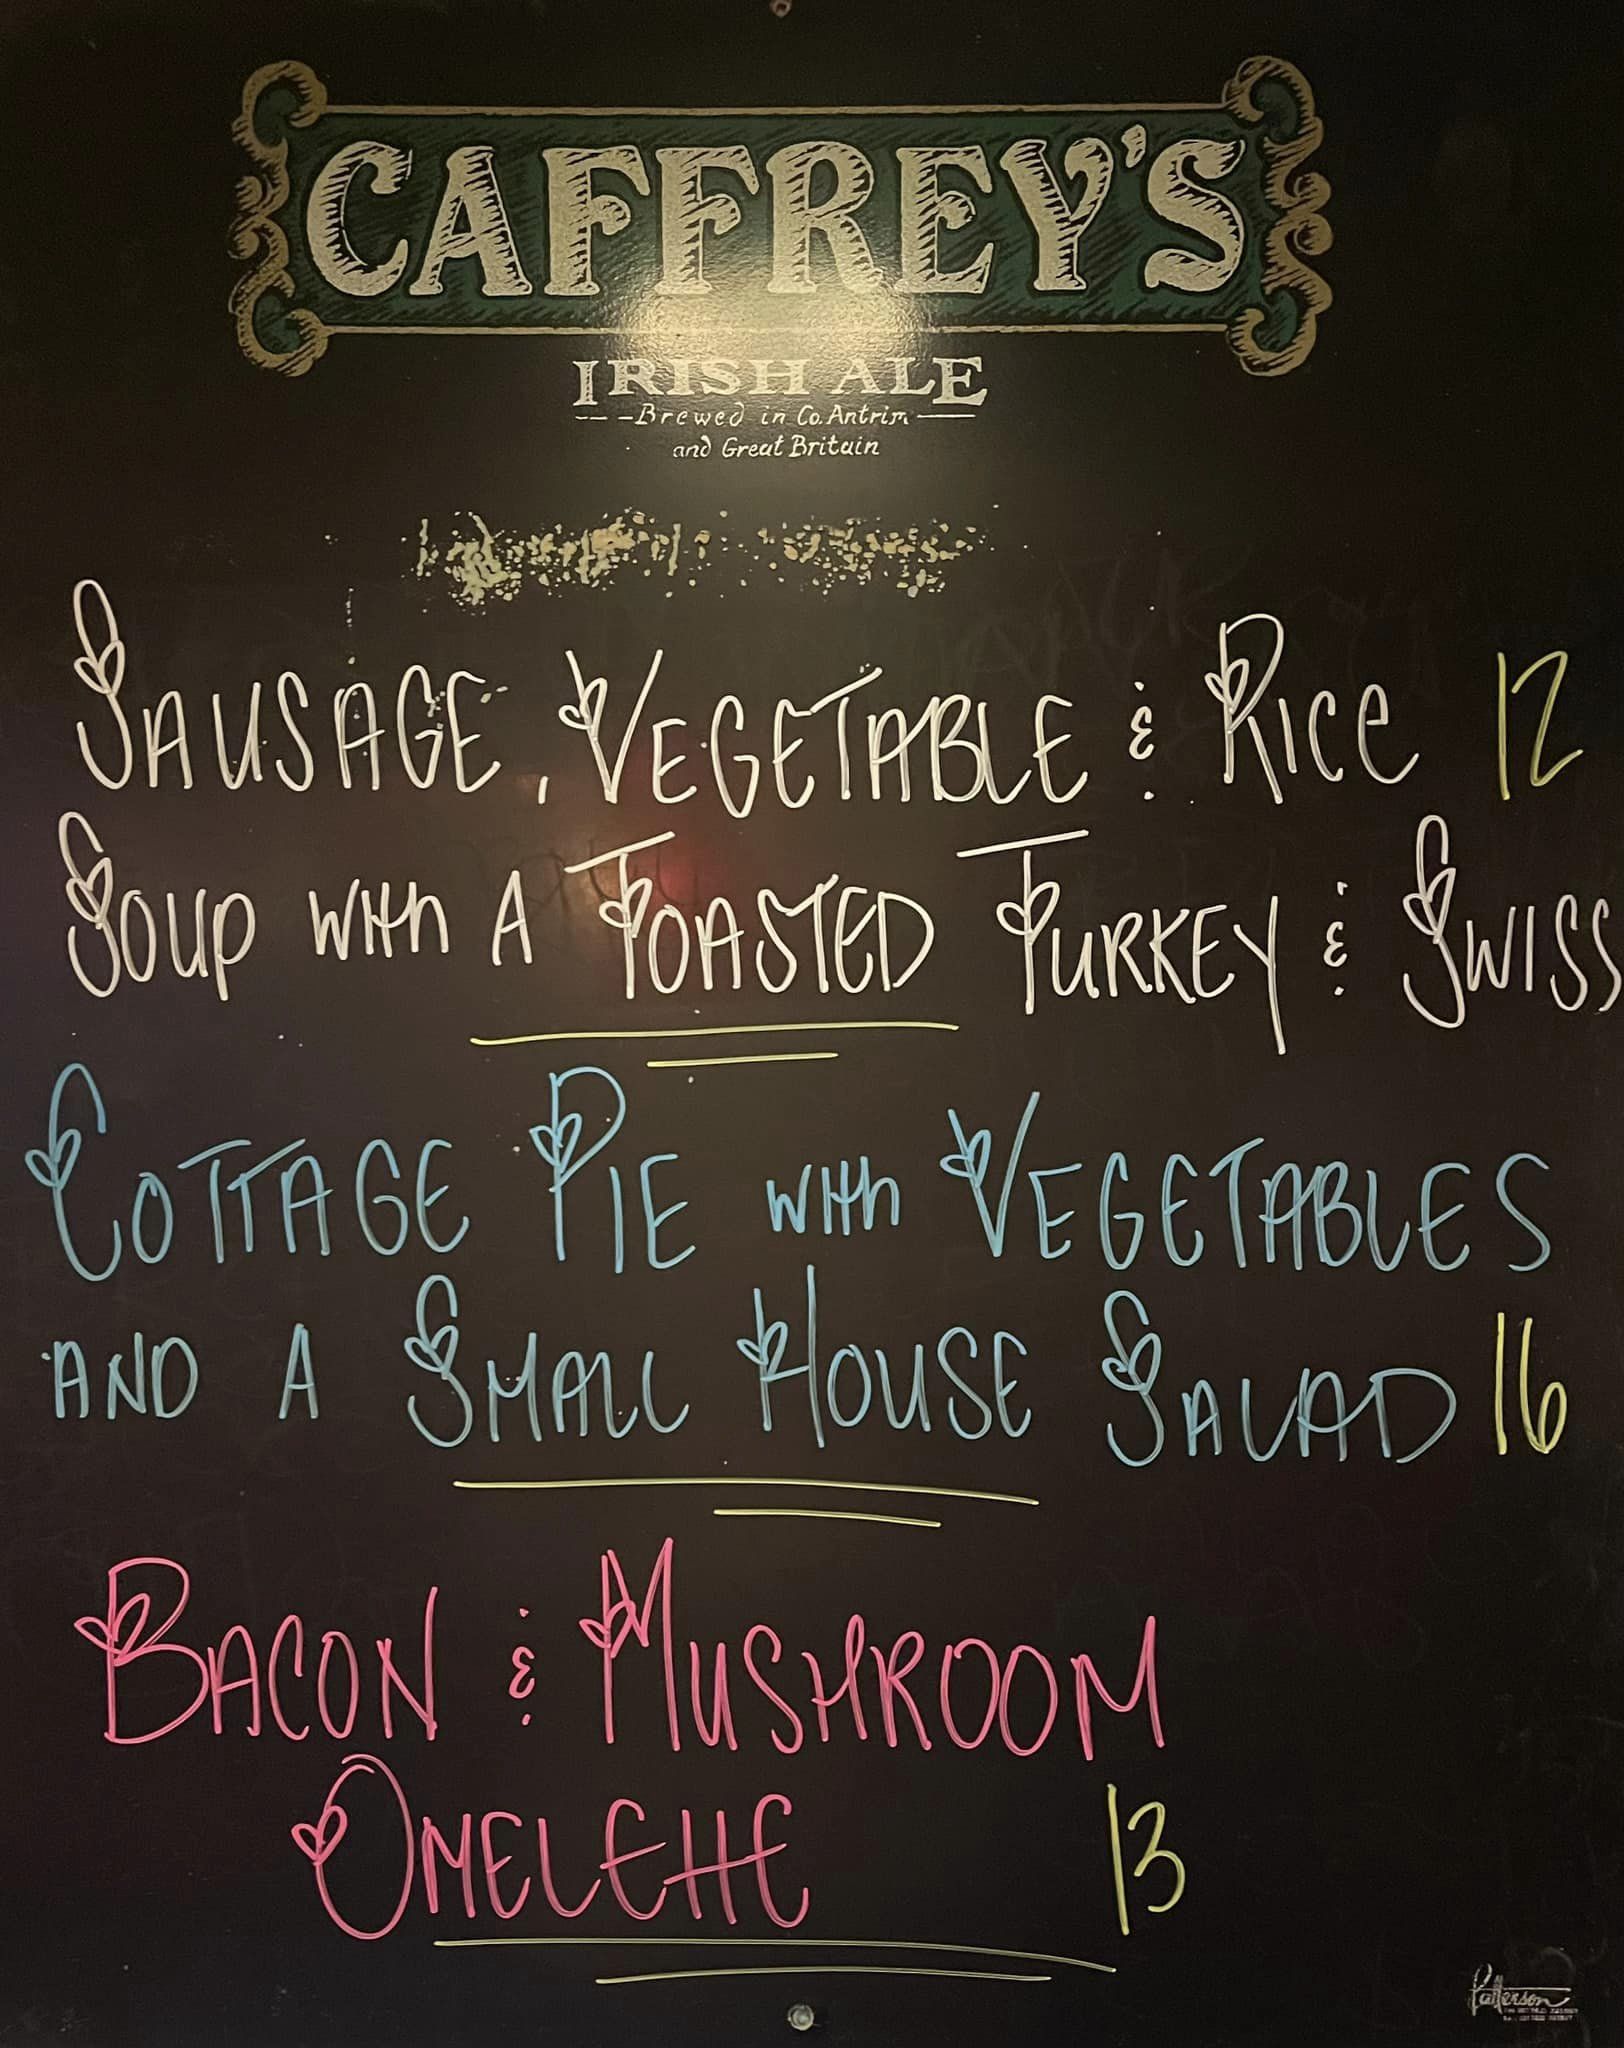 CAFFREY'S
IRISH ALE
Brewed in Co. Antrim
and Great Britain
SAUSAGE, VEGETABLE & RICE 12
SOUP WITH A TOASTED TURKEY & SWISS
COTTAGE PIE WITH VEGETABLES
AND A SMALL HOUSE SALAD 16
BACON & MUSHROOM
OMELETTE 13
Patterson